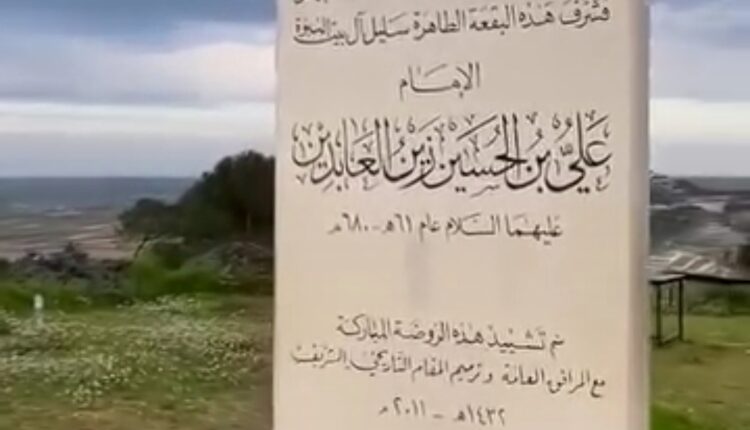 فشرف هذه البقعة الطاهرة سليل آل بيت النبوة
الإمام
عليّ بن الحسين زين العابدين
عليهما السلام عام ٦١هـ - ٦٨٠م
تم تشييد هذه الروضة المباركة
مع المرافق العامة وترميم المقام التاريخي الشريف
١٤٣٢هـ - ٢٠١١م